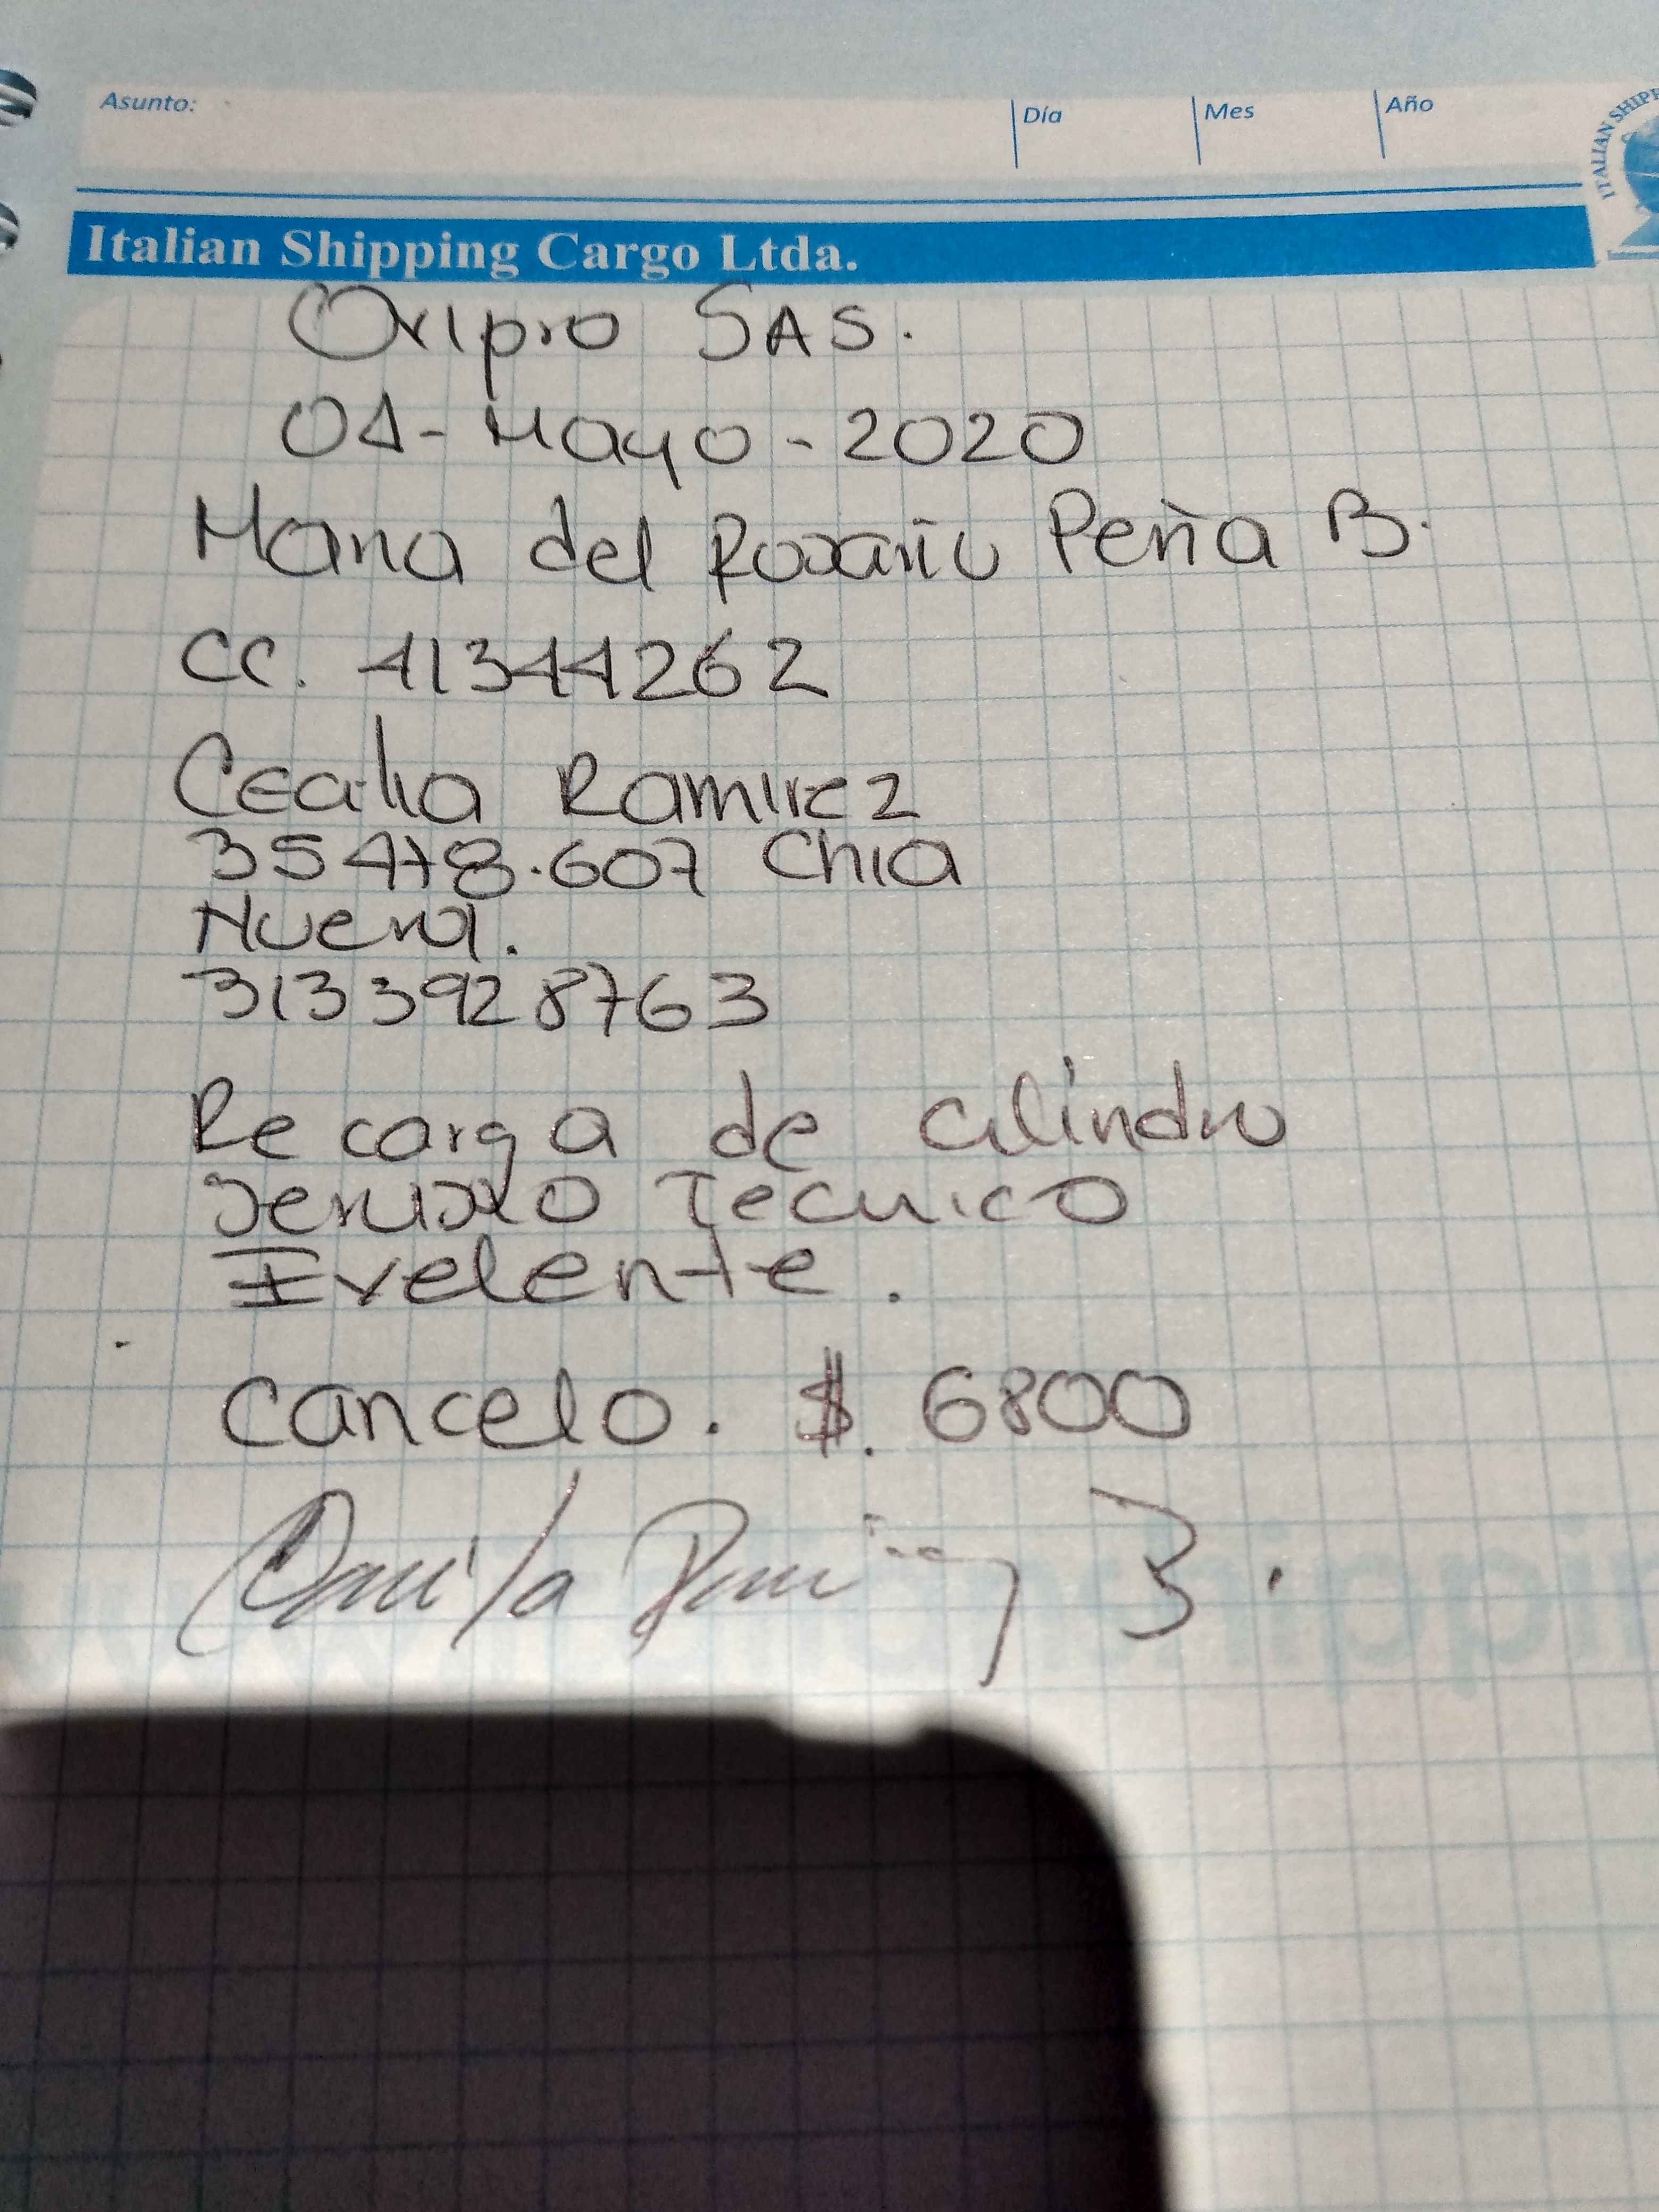 Asunto:
Día
Mes
Año
ITALIAN SHIPP
Italian Shipping Cargo Ltda.
Oxipro SAS.
04-Mayo-2020
Maria del Rosario Peña B.
CC. 41344262
Cecilia Ramirez
35478.607 Chia
Nuera.
3133928763
Recarga de cilindro
Servicio Tecnico
Exelente.
Cancelo. $. 6800